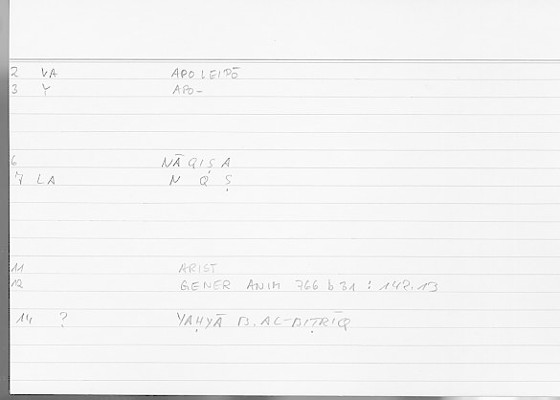 2 VA APOLEIPŌ
3 Y APO-
6 NĀQIṢA
7 LA N Q Ṣ
11 ARIST
12 GENER ANIM 766 b 31 : 142.13
14 ? YAḤYĀ B. AL-BIṬRĪQ